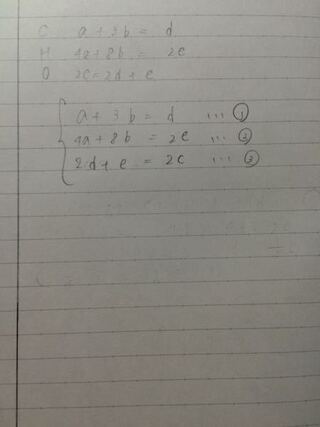 C a + 3b = d
H 4a + 8b = 2e
O 2c = 2d + e
a + 3b = d ... ①
4a + 8b = 2e ... ②
2d + e = 2c ... ③